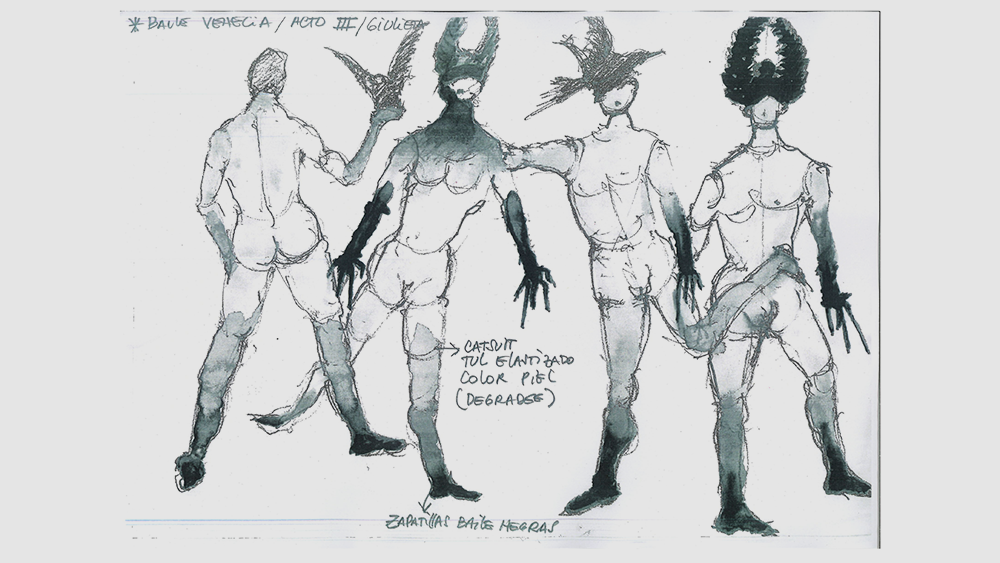 * BAILE VENECIA / ACTO III / GIULIETA
CATSUIT
TUL ELASTIZADO
COLOR PIEL
(DEGRADEE)
ZAPATILLAS BAILE NEGRAS